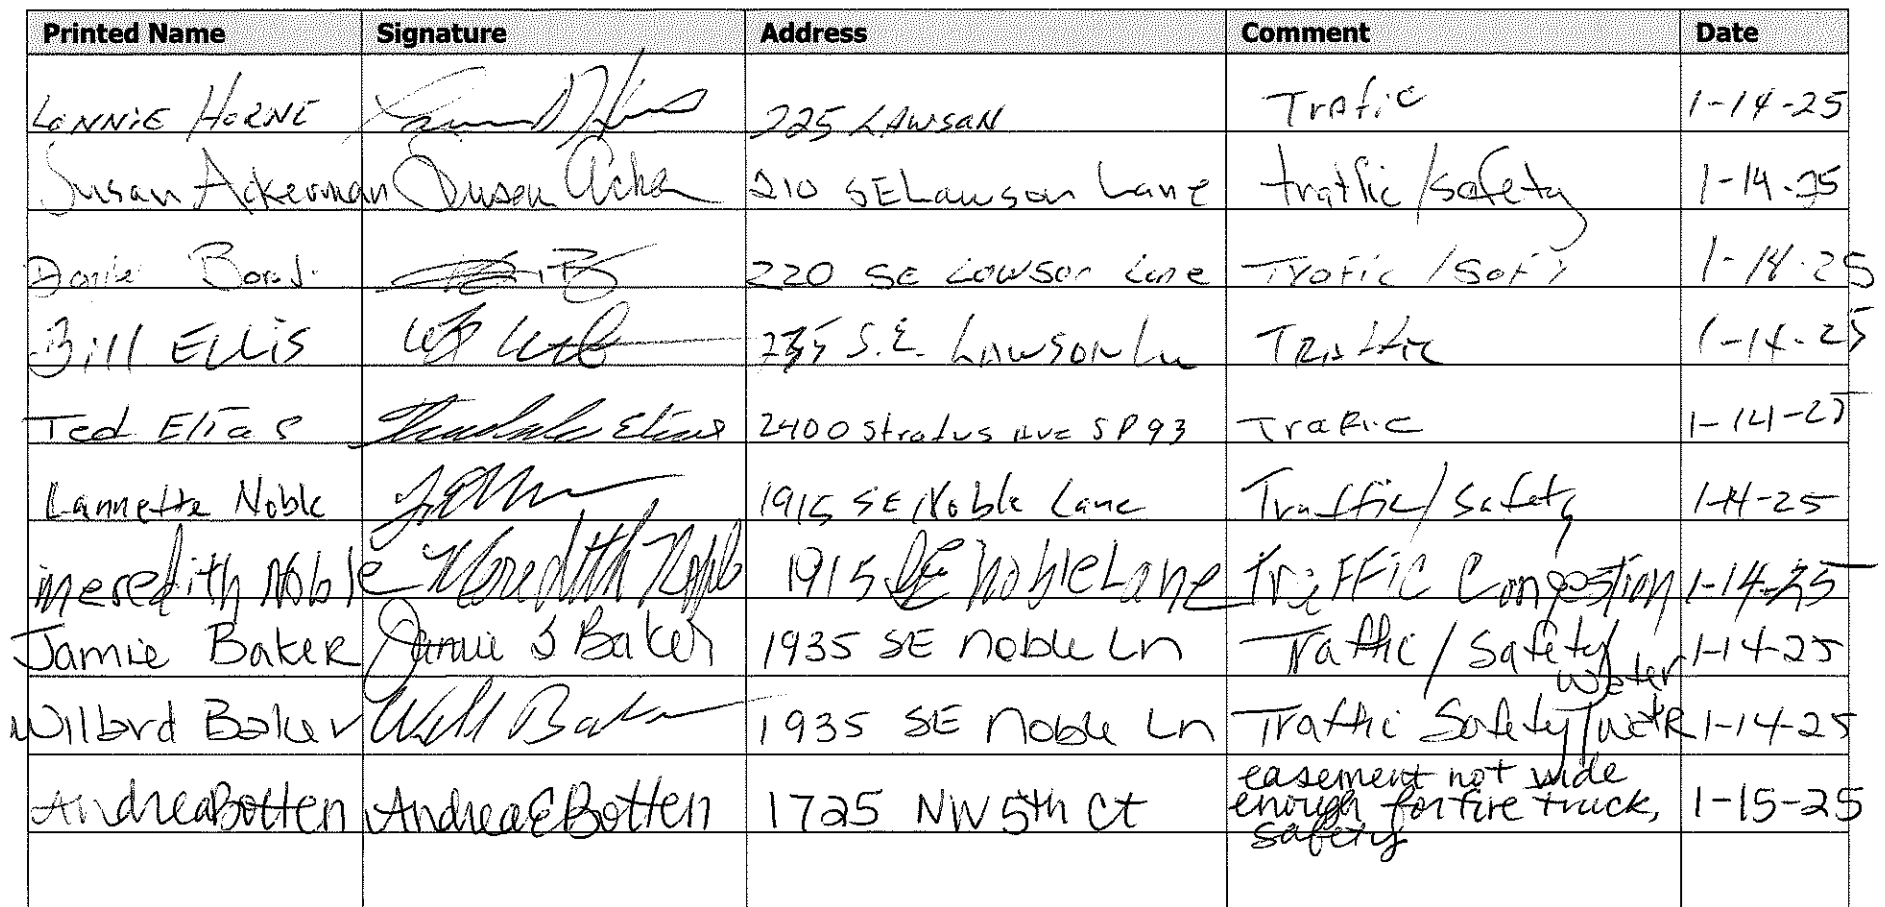 Printed Name Signature Address Comment Date
LONNIE HORNE 225 LAWSAN Trafic 1-14-25
Susan Ackerman Susan Acker 210 SE Lawson Lane traffic/safety 1-14-25
Bond 220 SE Lawson Lane Trafic / 1-14-25
Bill ELLIS S.E. LAWSON Ln TRAffic 1-14-25
Ted Elias Elias 2400 Stratus Ave SP 93 Traffic 1-14-25
Lannette Noble 1915 SE Noble Lane Traffic/Safety 1-14-25
meredith Noble Meredith Noble 1915 SE Noble Lane traFFic Congestion 1-14-25
Jamie Baker Jamie S Baker 1935 SE Noble Ln Traffic/Safety/ 1-14-25
water
Willard Baker Will Baker 1935 SE Noble Ln Traffic Safety/watR 1-14-25
easement not wide
Andrea Botten Andrea E Botten 1725 NW 5th Ct enough for fire truck, 1-15-25
safety